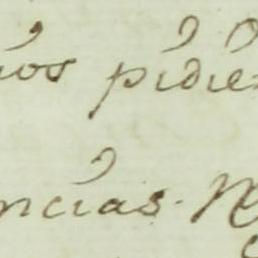 ios pidie
ncias.